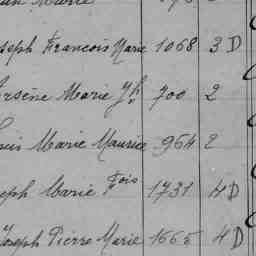 Marie
seph Francois Marie 1068 3 D
rsène Marie Jh 700 2
uis Marie Maurice 964 2
eph Marie Fois 1731 4 D
Joseph Pierre Marie 1665 4 D